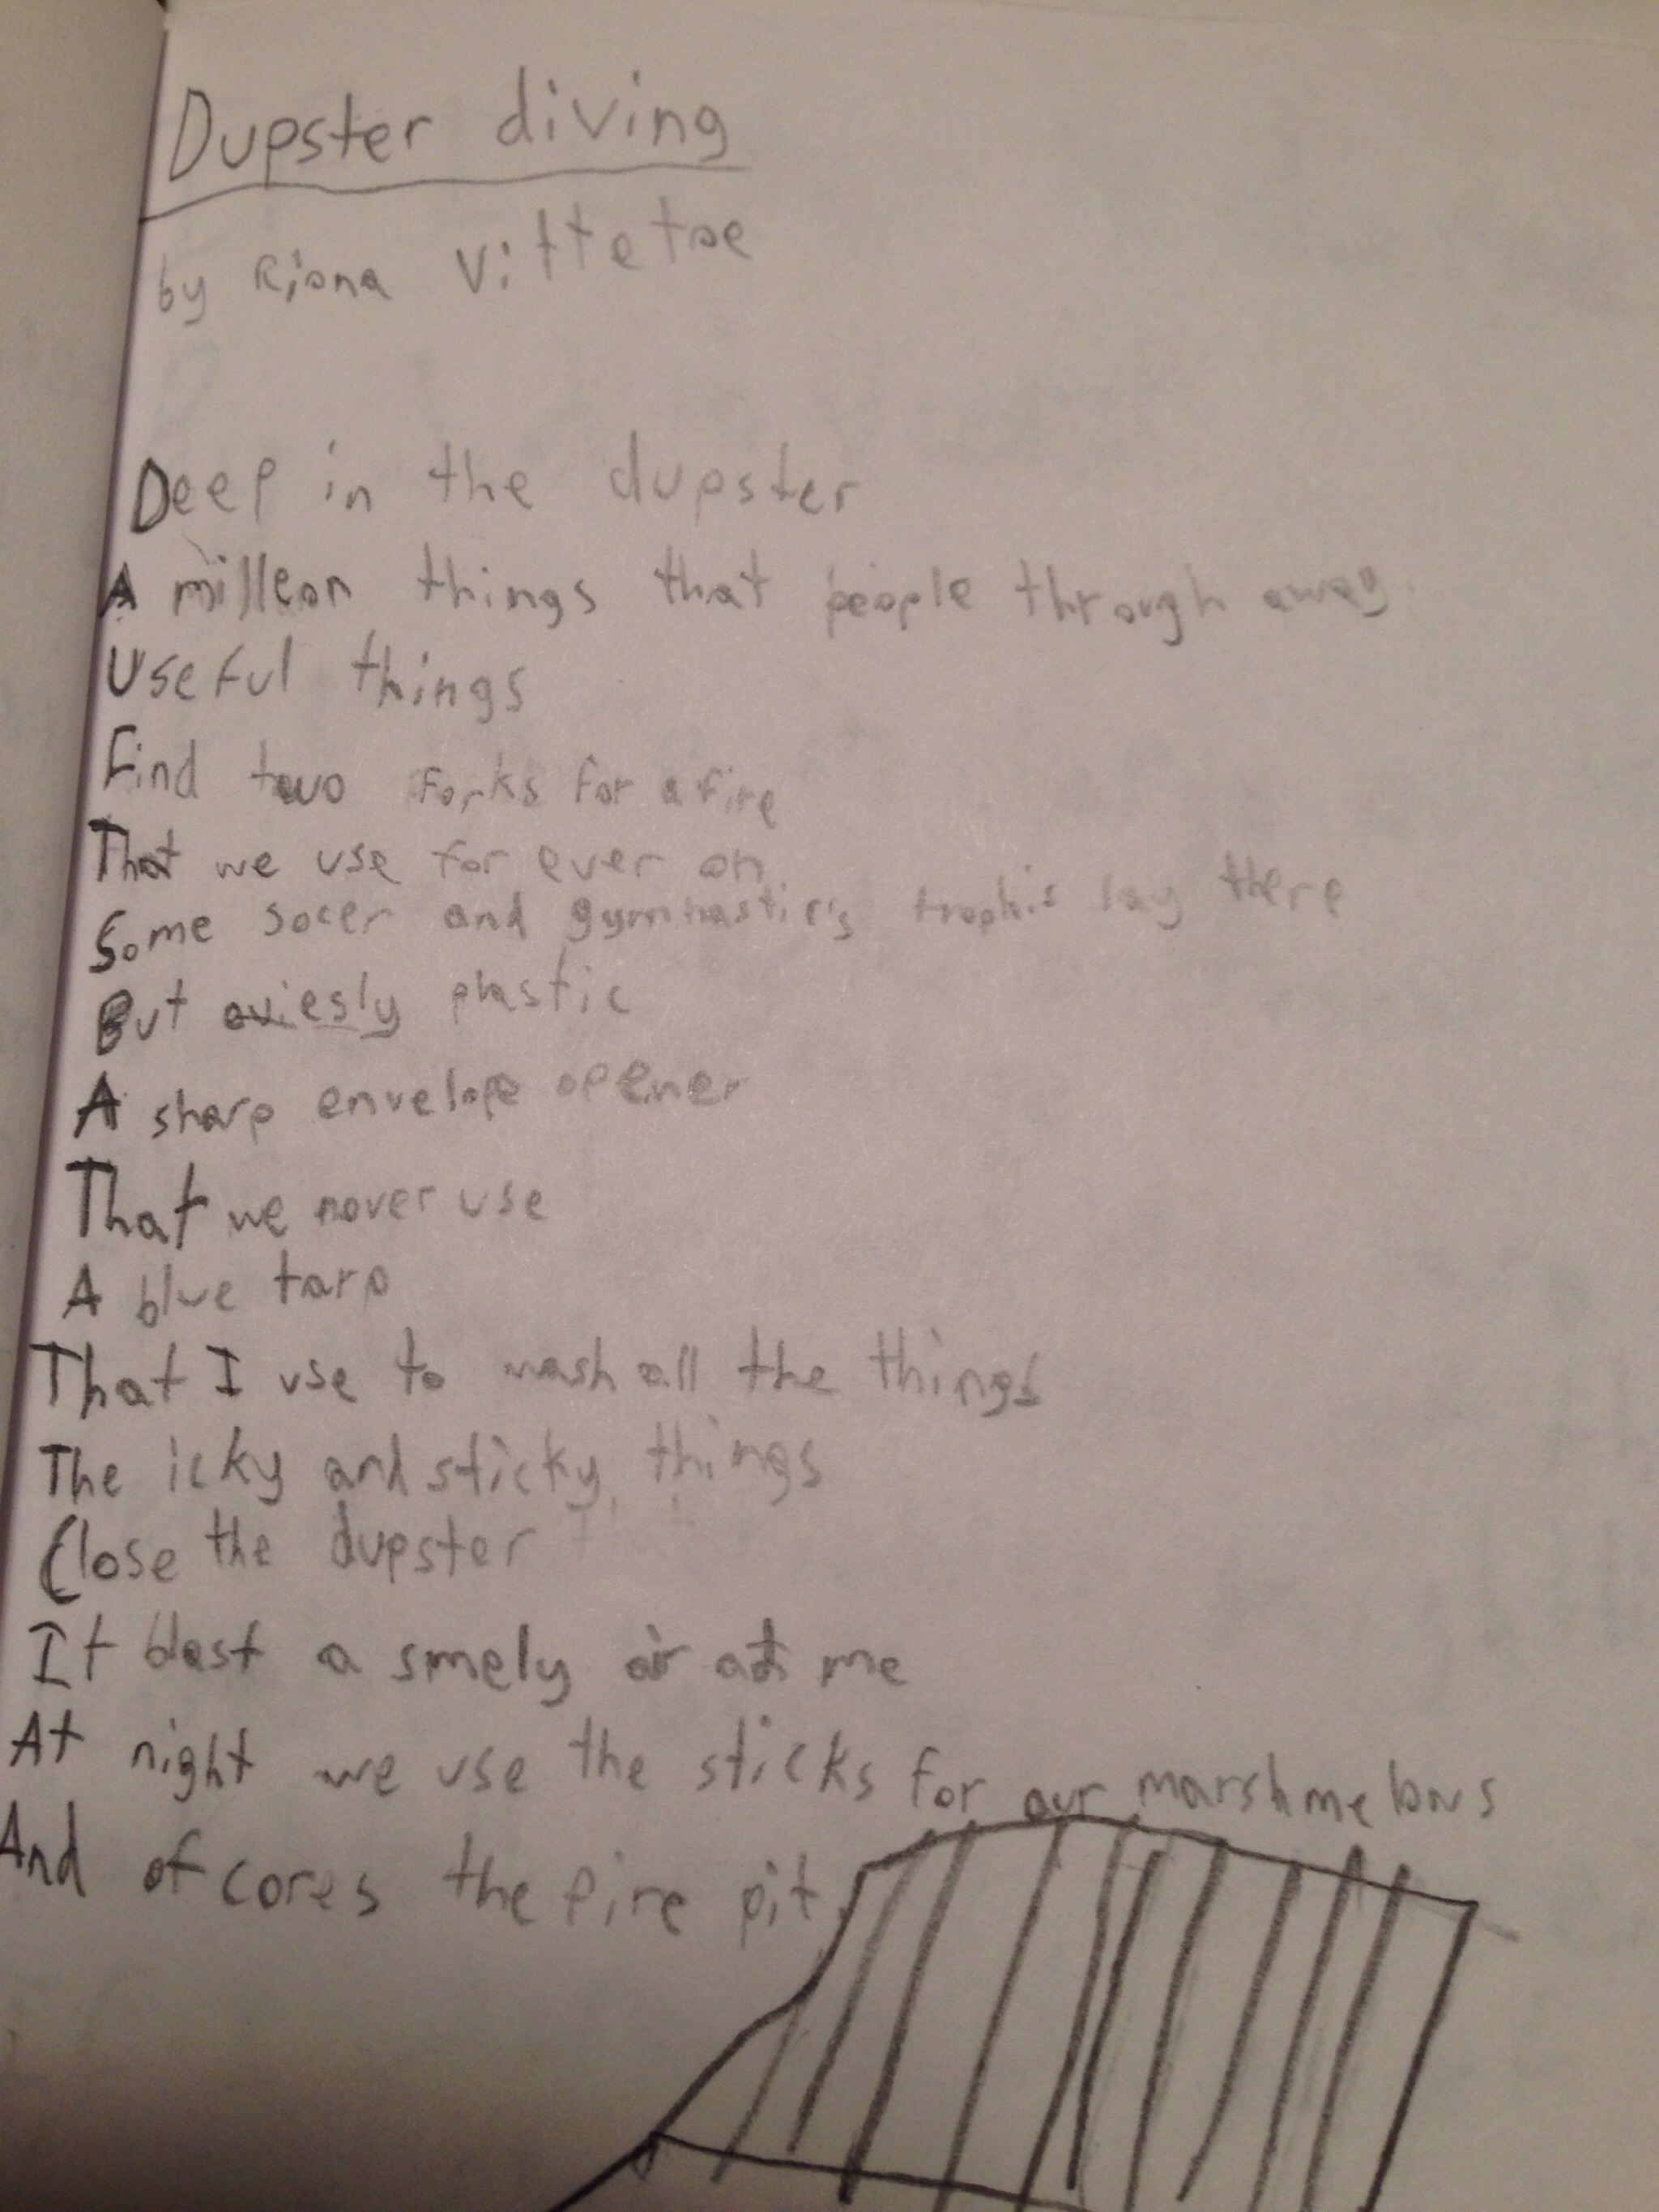 Dupster diving
by Riona Vittetoe
Deep in the dupster
A milleon things that people through away.
Useful things
Find two forks for a fire
That we use for ever on
Some socer and gymnastics trophis lay there
But oviesly plastic
A sharp envelope opener
That we never use
A blue tarp
That I use to wash all the things
The icky and sticky things
Close the dupster
It blast a smely air at me
At night we use the sticks for our marshmelows
And of cores the fire pit.